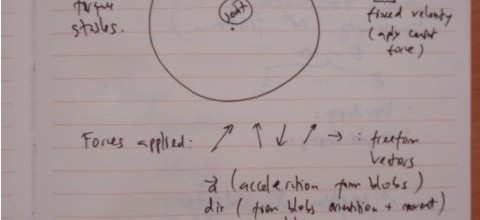 torque
stables.
joint
fixed velocity
(apply const
force)
Forces applied: ↗ ↑ ↓ ↗ → : freeform
vectors
(acceleration from blobs)
dir (from blobs orientation + movement)